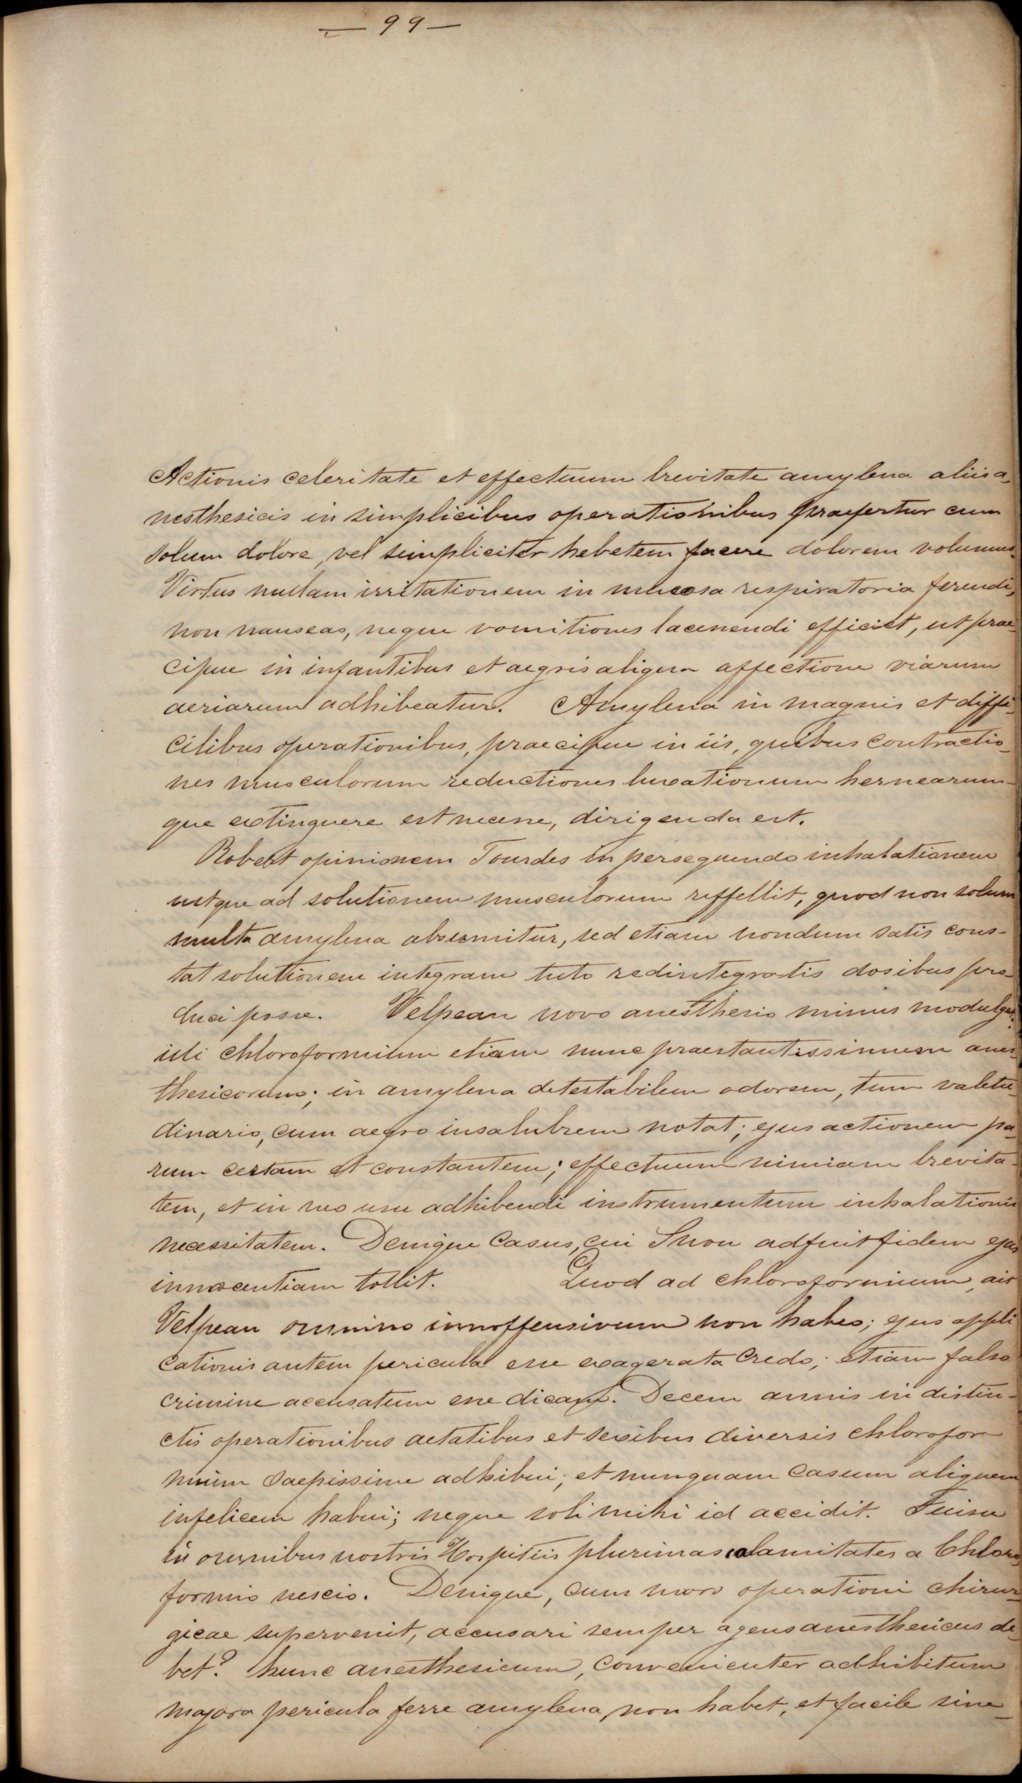 — 99 —
Actionis celeritate et effectuum brevitate amylena aliis a-
nesthesicis in simplicibus operationibus praefertur cum
solum dolore, vel simpliciter hebetem facere dolorem volumus.
Virtus nullam irritationem in mucosa respiratoria ferendi,
non nauseas, neque vomitiones lacenendi efficiet, ut prae-
cipue in infantibus et aegris aliqua affectione viarum
aeriarum adhibeatur. Amylena in magnis et diffi-
cilibus operationibus, praecipue in iis, quibus contractio-
nes musculorum reductiones luxationum hernearum-
que extinguere est necesse, dirigenda est.
Robert opinionem Tourdes in persequendo inhalationem
usque ad solutionem musculorum reffellit, quod non solum
multa amylena absumitur, sed etiam nondum satis cons-
tat solutionem integram tuto redintegratis dosibus pro-
duci posse. Velpeau novo anesthesio minus modulgus
uti chloroformium etiam nunc praestantissimum anes-
thesicorum; in amylena detestabilem odorem, tum valetu-
dinario, cum aegro insalubrem notat; ejus actionem pa-
rum certam et constantem; effectuum nimiam brevita-
tem, et in suo usu adhibendi instrumentum inhalationis
necessitatem. Denique casus, cui Snou adfuit fidem ejus
innocentiam tollit. Quod ad chloroformium, ait
Velpeau omnino innoffensivum non habeo; ejus appli
cationis autem pericula esse exagerata credo; etiam falso
crimine accusatum esse dicam. Decem annis in distin-
ctis operationibus aetatibus et sexibus diversis chlorofor-
mium saepissime adhibui; et nunquam casum aliquem
infelicem habui; neque soli mihi id accidit. Fuisse
in omnibus nostris Hospitiis plurimas calamitates a Chloro
formio nescio. Denique, cum mors operationi chirur-
gicae supervenit, accusari semper agens anesthesicus de-
bet? hunc anesthesicum, convenienter adhibitum
majora pericula ferre amylena, non habet, et facile sine-